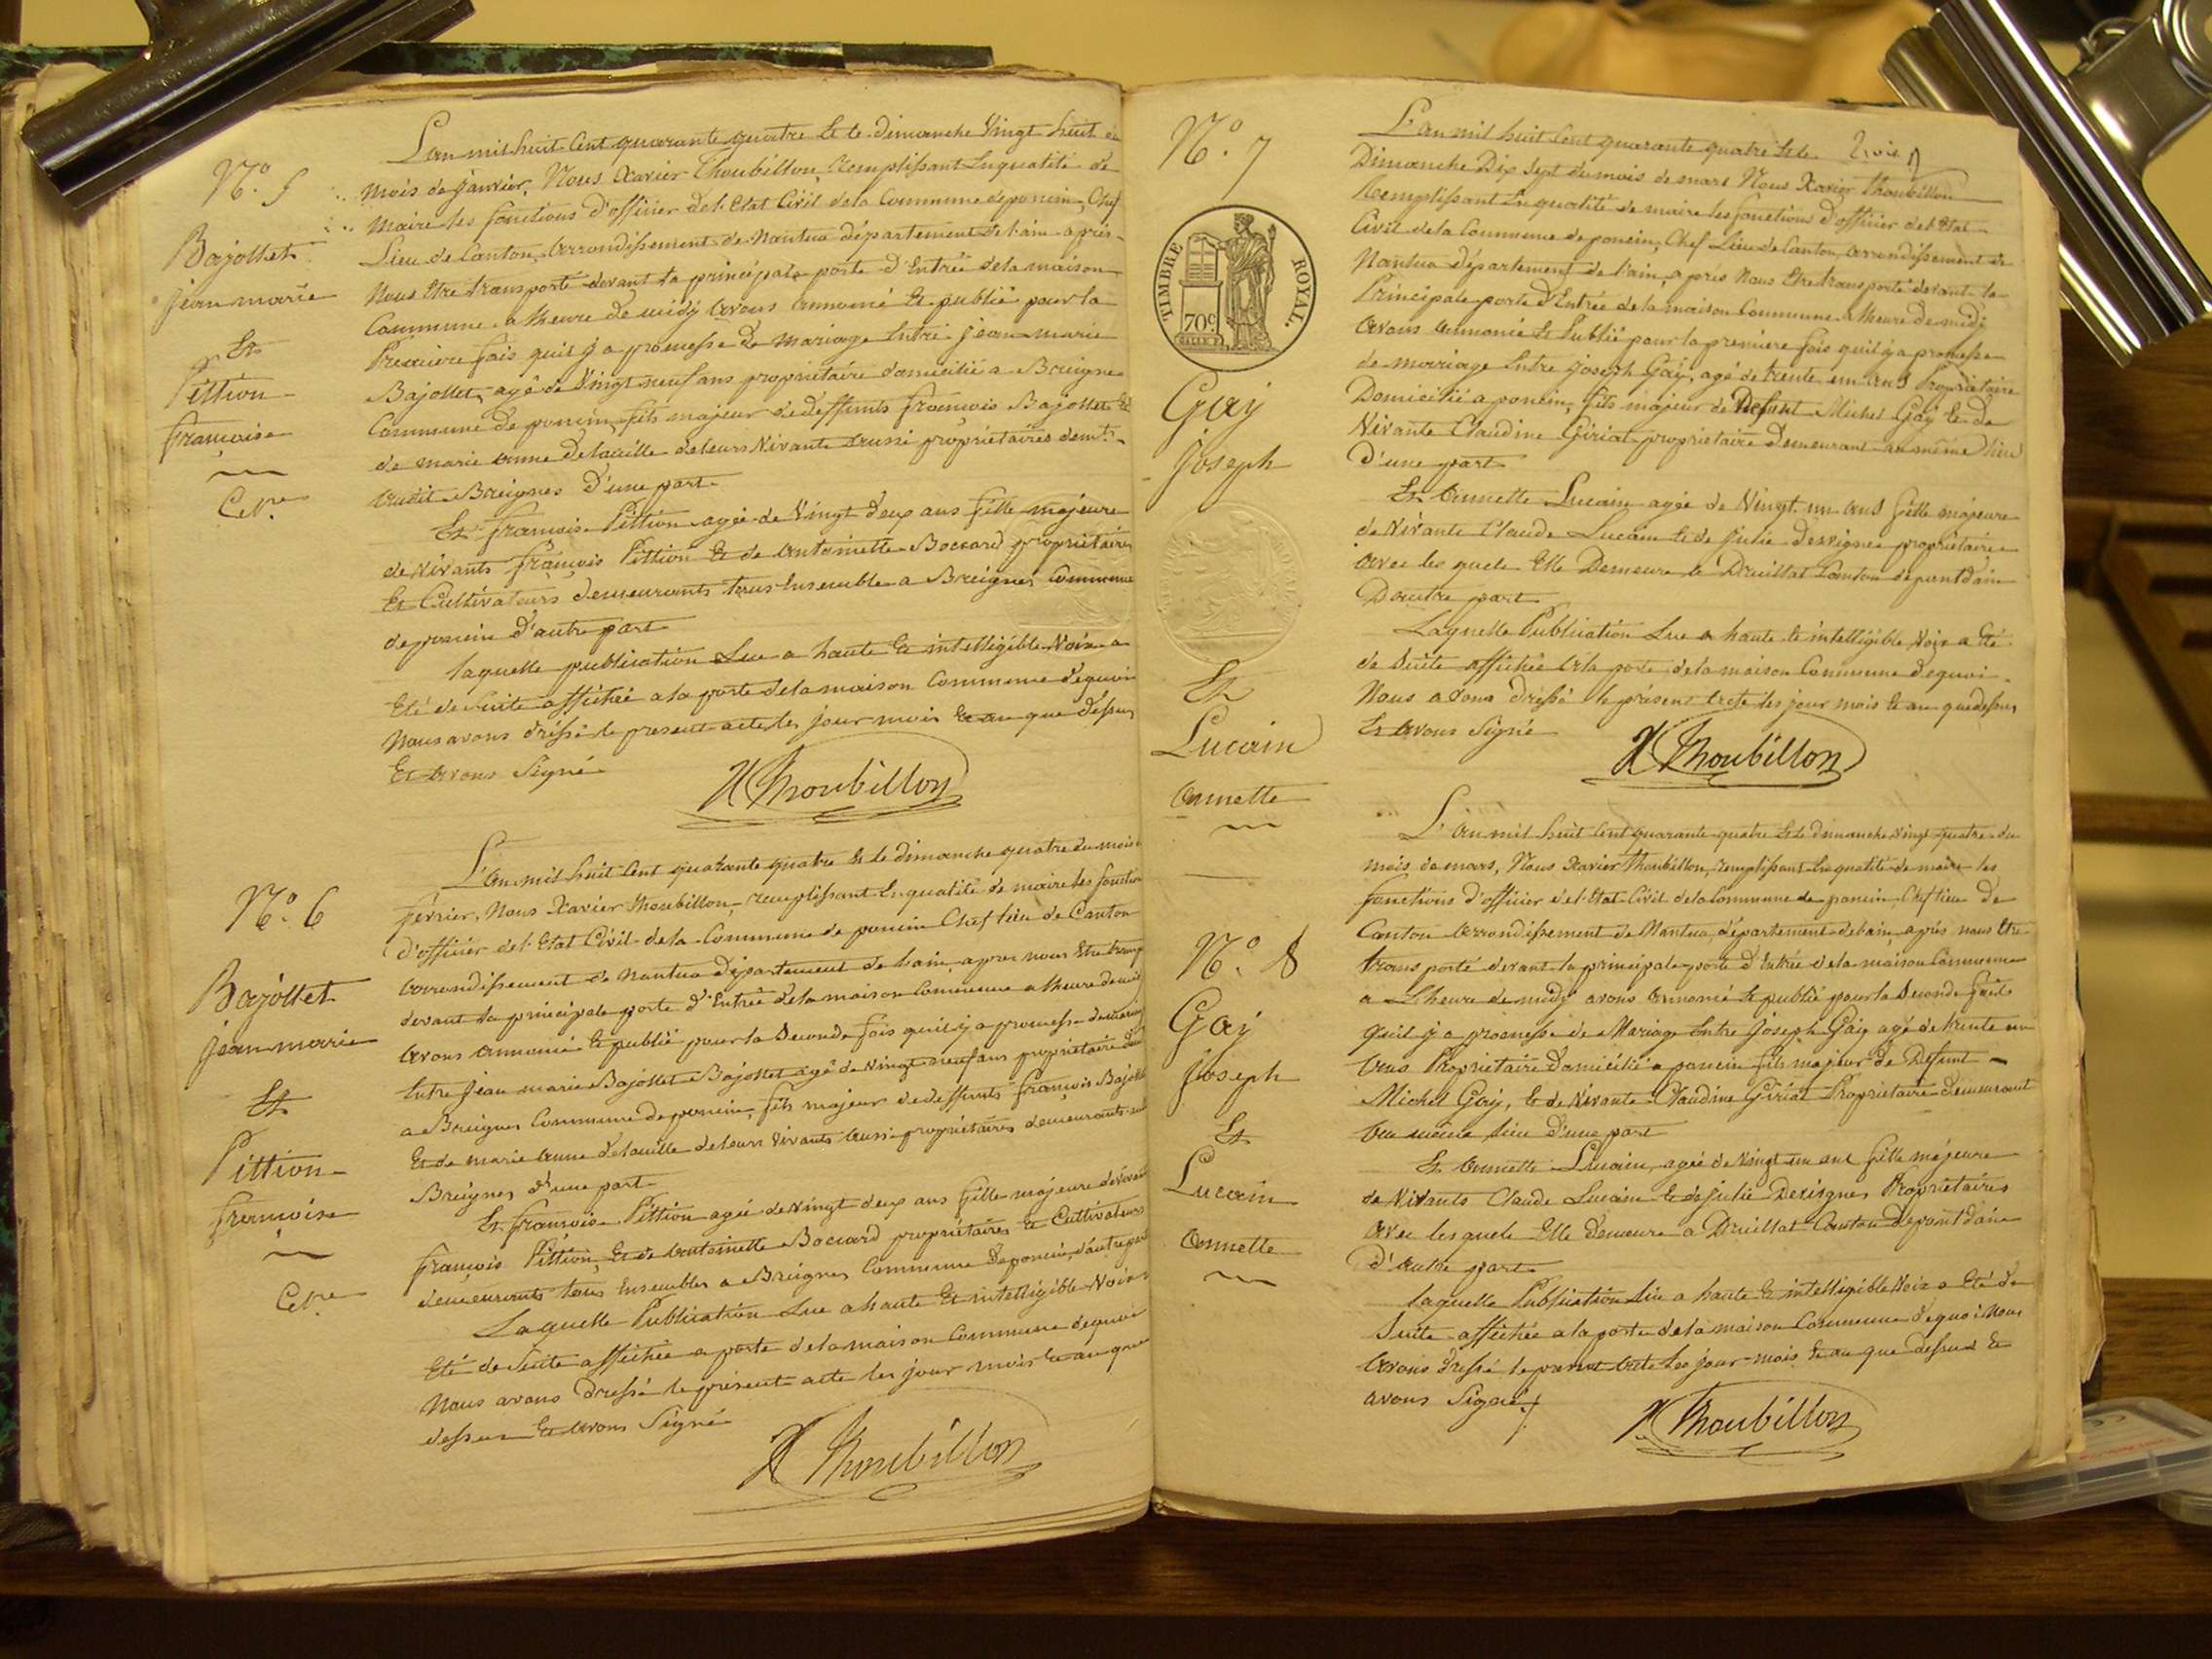 N.° 5
Bajollet
jean marie
Et
Pittion
françoise
Cel.re
L'an mil huit Cent quarante quatre Et le dimanche Vingt huit du
mois de janvier, Nous Xavier Thoubillon, remplissant En qualité de
maire les fonctions d'officier de l'Etat Civil de la Commune de poncin, Chef
Lieu de Canton, arrondissement de Nantua département de l'ain après
Nous Etre transporté devant la principale porte d'Entrée de la maison
Commune a l'heure de midy avons annoncé Et publié pour la
Premiere fois qu'il y a promesse de mariage Entre jean marie
Bajollet, agé de Vingt neuf ans propriétaire domicilié a Breignes
Commune de poncin, fils majeur de deffunts françois Bajollet Et
de marie anne de leurs Vivants aussi propriétaires dem.ts
audit Breignes D'une part
Et françoise Pittion agée de Vingt Deux ans fille majeure
de Vivants françois Pittion Et de antoinette Boccard propriétaires
Et Cultivateurs demeurants tous Ensemble a Breignes Commune
de poncin D'autre part
laquelle publication Lue a haute Et intelligible Voix a
Eté de Suite affichée a la porte de la maison Commune de quoi
Nous avons dréssé le present acte les jour mois Et an que dessus
Et avons Signé
X Thoubillon
N.° 6
Bajollet
jean marie
Et
Pittion
françoise
Cel.re
L'an mil huit Cent quarante quatre Et le dimanche quatre du mois
fevrier, Nous Xavier Thoubillon, remplissant En qualité de maire les fonction
d'officier de l'Etat Civil de la Commune de poncin Chef lieu de Canton
arrondissement de Nantua département de l'ain, apres nous Etre transp
devant la principale porte d'Entrée de la maison Commune a l'heure de midi
avons annoncé Et publié pour la Seconde fois qu'il y a promesse de mariag
Entre jean marie Bajollet Bajollet agé de Vingt neuf ans propriétaire
a Breignes Commune de poncin, fils majeur de deffunts françois Bajollet
Et de marie anne de leurs Vivants aussi propriétaires demeurants
Breignes d'une part
Et françoise Pittion agée de Vingt deux ans fille majeure de Vivants
françois Pittion, Et de antoinette Boccard propriétaires Et Cultivateurs
demeurants tous Ensembles a Breignes Commune de poncin, d'autre part
Laquelle Publication Lue a haute Et intelligible Voix
Eté de Suite affichée a porte de la maison Commune de quoi
Nous avons Dressé le présent acte les jour mois Et an que
dessus Et avons Signé
X Thoubillon
N.° 7
TIMBRE ROYAL.
70c
Gay
Joseph
Et
Lucain
annette
L'an mil huit Cent quarante quatre Et le
Dimanche Dix Sept du mois de mars Nous Xavier Thoubillon
Remplissant En qualité de maire les fonctions d'officier de l'Etat
Civil de la Commune de poncin, Chef Lieu de Canton, arrondissement de
Nantua département de l'ain, apres Nous Etre transporté devant la
Principale porte D'Entrée de la maison Commune a l'heure de midy
avons annoncé Et Publié pour la premiere fois qu'il y a promesse
de mariage Entre joseph Gay, agé de trente un ans Propriétaire
Domicilié a poncin, fils majeur de Defunt Michel Gay Et de
Vivante Claudine Giriat propriétaire Demeurant au même lieu
D'une part
Et annette Lucain agée de Vingt un ans fille majeure
de Vivants Claude Lucain Et de julie Desvignes propriétaires
avec les quels Elle Demeure a Druillat Canton de pontdain
D'autre part
Laquelle Publication Lue a haute Et intelligible Voix a Eté
de Suite affichée à la porte de la maison Commune de quoi
Nous avons Dréssé le présent acte les jour mois Et an que dessus
Et avons Signé
X Thoubillon
N.° 8
Gay
Joseph
Et
Lucain
annette
L'an mil huit Cent quarante quatre Et le dimanche Vingt quatre du
mois de mars, Nous Xavier Thoubillon, remplissant En qualité de maire les
fonctions d'officier de l'Etat Civil de la Commune de poncin, Chef lieu de
Canton arrondissement de Nantua, département de l'ain, après nous Etre
transporté devant la principale porte d'Entrée de la maison Commune
a L'heure de midy avons annoncé Et publié pour la Seconde fois
qu'il y a promesse de Mariage Entre Joseph Gay agé de trente un
ans Propriétaire Domicilié a poncin fils majeur de Defunt
Michel Gay, Et de Vivante Claudine Giriat Propriétaire demeurant
au même lieu d'une part
Et annette Lucain, agée de Vingt un ans fille majeure
de Vivants Claude Lucain Et de julie Desvignes Propriétaires
avec les quels Elle demeure a Druillat Canton de pontdain
d'autre part
laquelle Publication lue a haute Et intelligible Voix a Eté de
Suite affichée a la porte de la maison Commune de quoi Nous
avons dressé le present acte les jour mois Et an que dessus Et
avons Signé
X Thoubillon